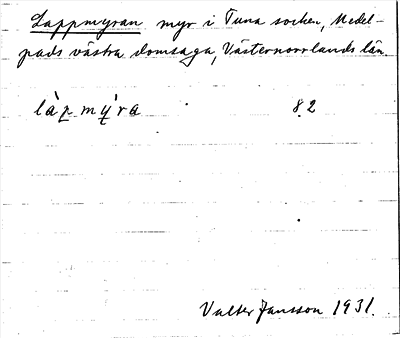 Lappmyran myr i Tuna socken, Medel-
pads västra domsaga, Västernorrlands län.
làpmý̨ra 8.2
Valter Jansson 1931.